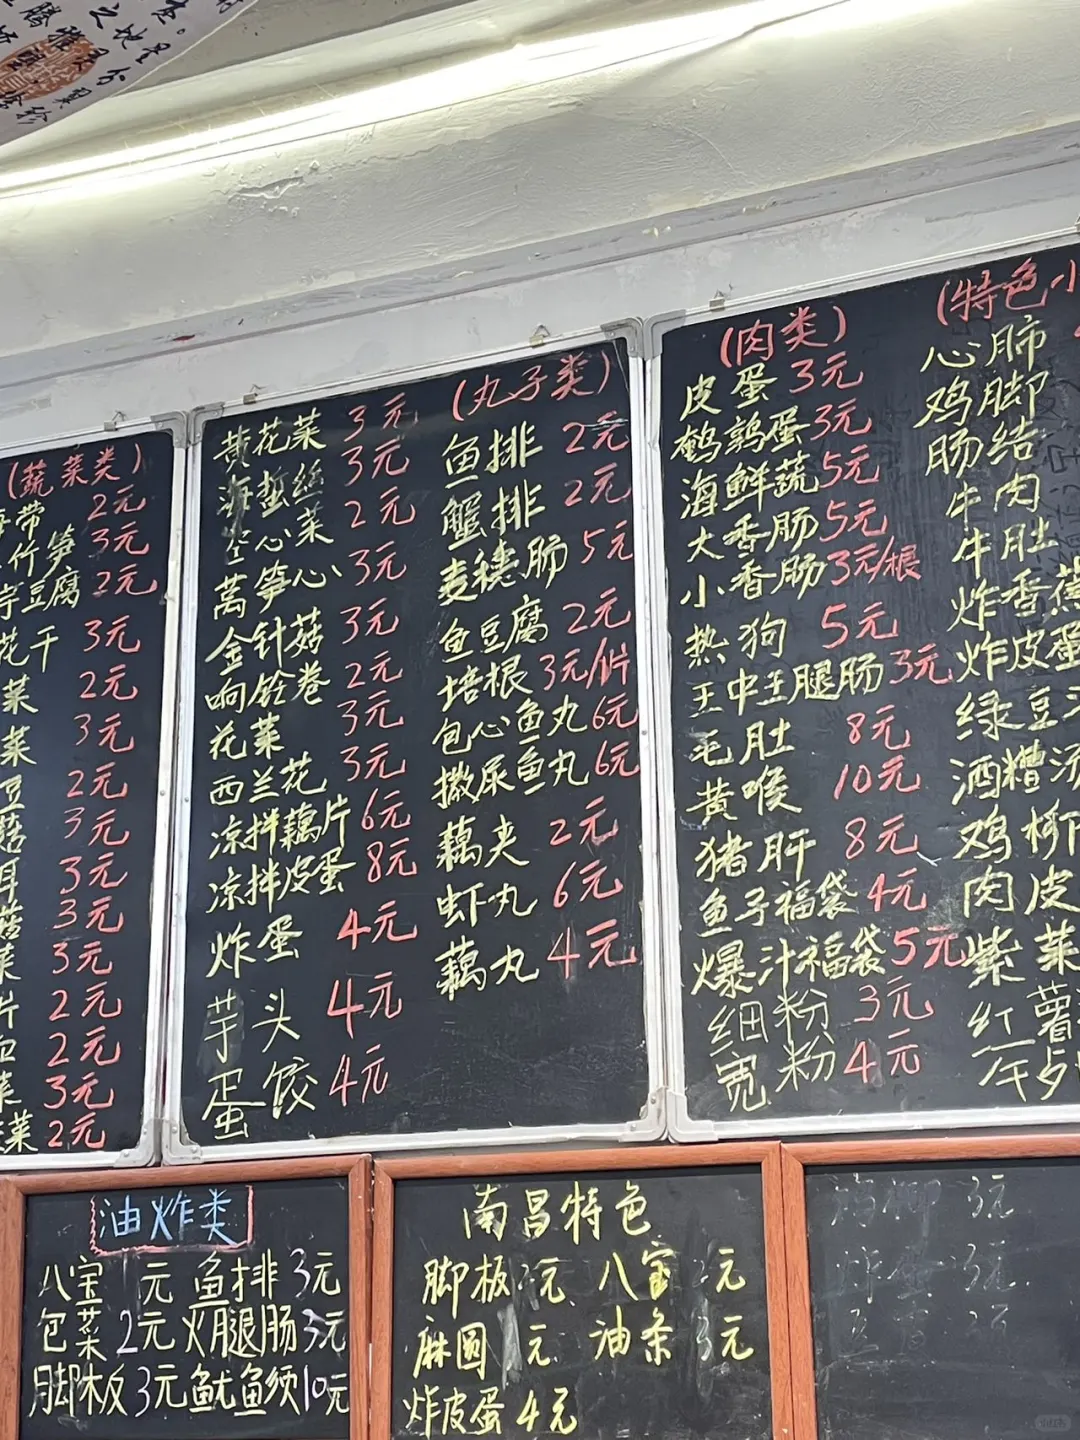 (蔬菜类)
带 2元
竹笋 3元
豆腐 2元
花干 3元
菜 2元
菜 3元
豆 2元
菇 3元
耳 3元
菇 3元
菜 3元
片 2元
2元
菜 3元
菜 2元
黄花菜 3元
海蜇丝 3元
空心菜 2元
莴笋心 3元
金针菇 3元
响铃卷 2元
花菜 3元
西兰花 3元
凉拌藕片 6元
凉拌皮蛋 8元
炸蛋 4元
芋头 4元
蛋饺 4元
(丸子类)
鱼排 2元
蟹排 2元
麦穗肠 5元
鱼豆腐 2元
培根 3元/片
包心鱼丸 6元
撒尿鱼丸 6元
藕夹 2元
虾丸 6元
藕丸 4元
(肉类)
皮蛋 3元
鹌鹑蛋 3元
海鲜蔬 5元
大香肠 5元
小香肠 3元/根
热狗 5元
王中王腿肠 3元
毛肚 8元
黄喉 10元
猪肝 8元
鱼子福袋 4元
爆汁福袋 5元
细粉 3元
宽粉 4元
(特色小
心肺
鸡脚
肠结
牛肉
牛肚
炸香蕉
炸皮蛋
绿豆
酒糟汤
鸡柳
肉皮
紫菜
红薯
油炸类
八宝 元 鱼排 3元
包菜 2元 火腿肠 3元
脚板 3元 鱿鱼须 10元
南昌特色
脚板 元 八宝 元
麻圆 元 油条 3元
炸皮蛋 4元
3元
3元